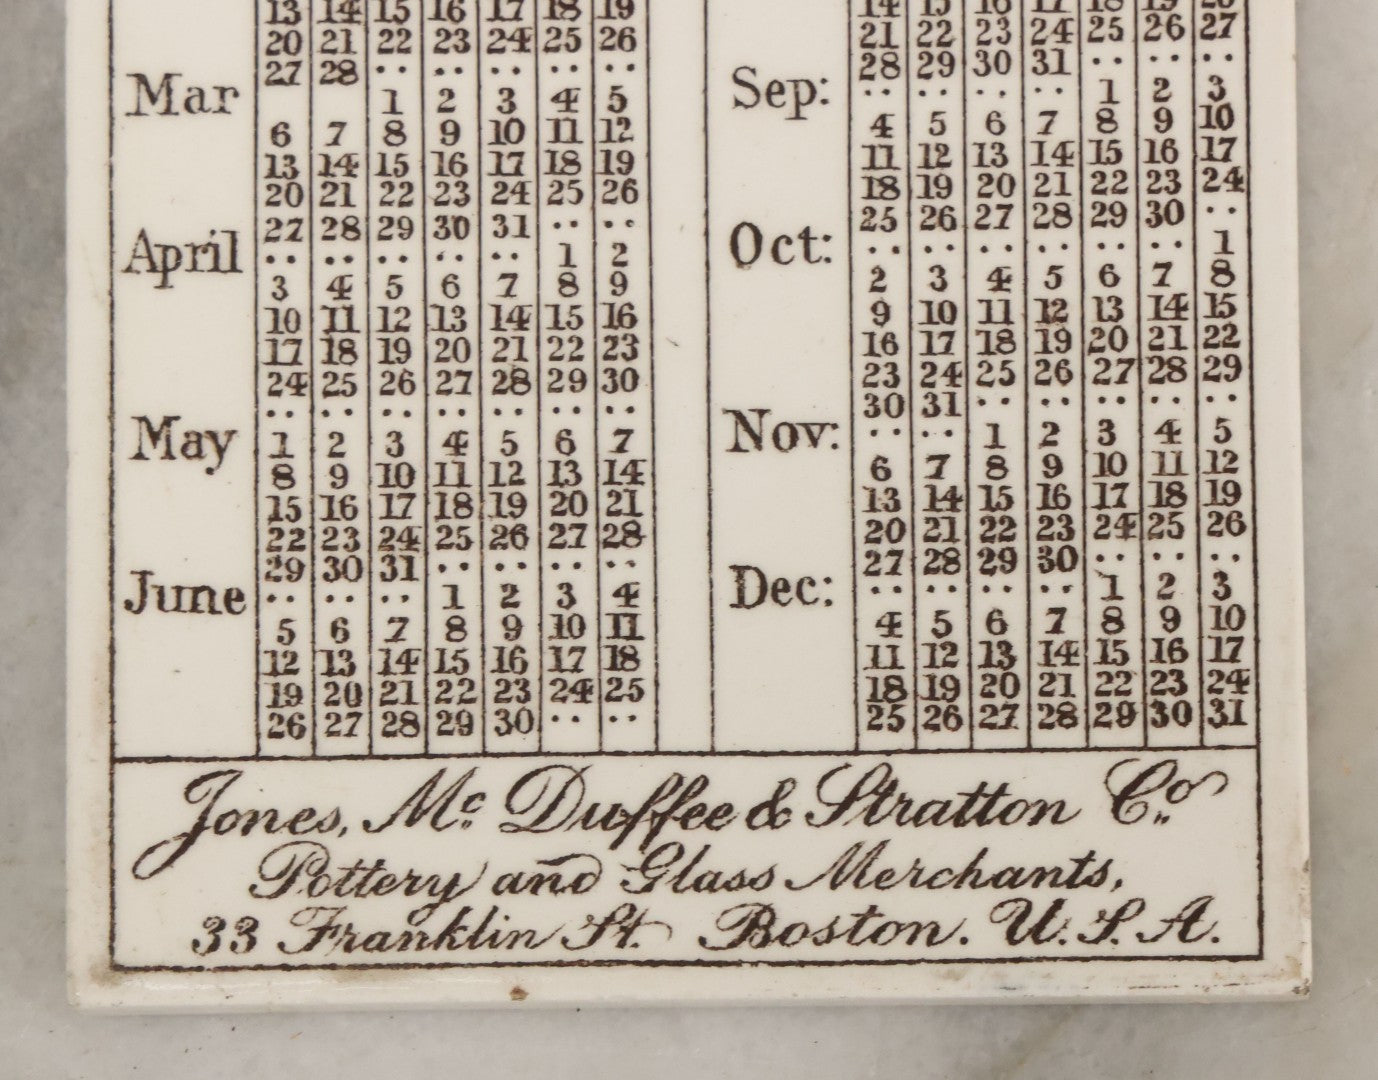 13 14 15 16 17 18 19
20 21 22 23 24 25 26
27 28 .. .. .. .. ..
Mar 1 2 3 4 5
6 7 8 9 10 11 12
13 14 15 16 17 18 19
20 21 22 23 24 25 26
27 28 29 30 31 .. ..
April .. .. .. .. .. 1 2
3 4 5 6 7 8 9
10 11 12 13 14 15 16
17 18 19 20 21 22 23
24 25 26 27 28 29 30
.. .. .. .. .. .. ..
May 1 2 3 4 5 6 7
8 9 10 11 12 13 14
15 16 17 18 19 20 21
22 23 24 25 26 27 28
29 30 31 .. .. .. ..
June .. .. .. 1 2 3 4
5 6 7 8 9 10 11
12 13 14 15 16 17 18
19 20 21 22 23 24 25
26 27 28 29 30 .. ..
14 15 16 17 18 19 20
21 22 23 24 25 26 27
28 29 30 31 .. .. ..
Sep: .. .. .. .. 1 2 3
4 5 6 7 8 9 10
11 12 13 14 15 16 17
18 19 20 21 22 23 24
25 26 27 28 29 30 ..
Oct: .. .. .. .. .. .. 1
2 3 4 5 6 7 8
9 10 11 12 13 14 15
16 17 18 19 20 21 22
23 24 25 26 27 28 29
30 31 .. .. .. .. ..
Nov: .. .. 1 2 3 4 5
6 7 8 9 10 11 12
13 14 15 16 17 18 19
20 21 22 23 24 25 26
27 28 29 30 .. .. ..
Dec: .. .. .. .. 1 2 3
4 5 6 7 8 9 10
11 12 13 14 15 16 17
18 19 20 21 22 23 24
25 26 27 28 29 30 31
Jones, Mc. Duffee & Stratton Co.
Pottery and Glass Merchants,
33 Franklin St. Boston. U. S. A.